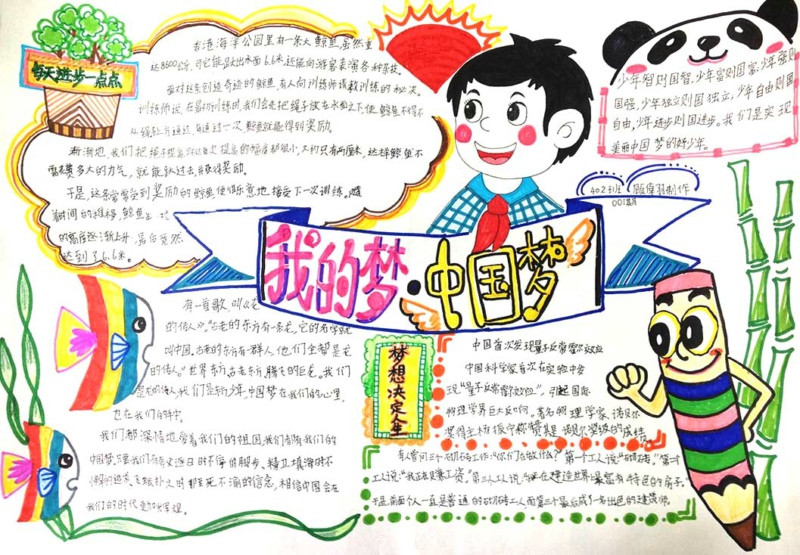 每天进步一点点
香港海洋公园里有一条大鲸鱼,虽然重
达8600公斤,可它能跃出水面6.6米,还能向游客表演各种杂技。
面对这条创造奇迹的鲸鱼,有人向训练师请教训练的秘诀。
训练师说,在最初训练时,我们会先把绳子放在水面之下,使鲸鱼不得不
从绳子上通过,每通过一次,鲸鱼就能得到奖励。
渐渐地,我们把绳子提高,只不过每次提高的幅度都很小,大约只有两厘米,这样鲸鱼不
需花费多大的力气,就能跃过去并获得奖励。
于是,这条常常受到奖励的鲸鱼便很乐意地接受下一次训练。随
时间的推移,鲸鱼
的高度逐渐上升,最后竟然
达到了6.6米。
少年智则国智,少年富则国富,少年强则
国强,少年独立则国独立,少年自由则国
自由,少年进步则国进步。我们是实现
美丽中国梦的好少年。
402班
制作
001期
我的梦·中国梦
有一首歌,叫《龙
的传人》。"古老的东方有一条龙,它的名字就
叫中国,古老的东方有一群人,他们全都是龙
的传人。"世界东方,古老东方,腾飞的巨龙,我们
是龙的传人,我们是新少年,中国梦在我们的心里,
也在我们的手中。
我们都深情地爱着我们的祖国,我们都有我们的
中国梦,只要我们有夸父逐日时不停的脚步、精卫填海时不
懈的追求、飞蛾扑火时那至死不渝的信念,相信中国会在
我们的时代变
梦想决定人生
中国首次发现量子反常霍尔效应
中国科学家首次在实验中发
现"量子反常霍尔效应",引起国际
物理学界巨大反响。著名物理学家、诺贝尔
奖得主杨振宁称赞是诺贝尔奖级的成绩。
有人曾问三个砌砖工作:"你们在做什么?"第一个工人说:"砌砖。"第二个
工人说:"我正在赚工资。"第三个工人说:"我正在建造世界上最富有特色的房子。"
于是,前面两个人一直是普通的砌砖工人,而第三个最后成了一名出色的建筑师。